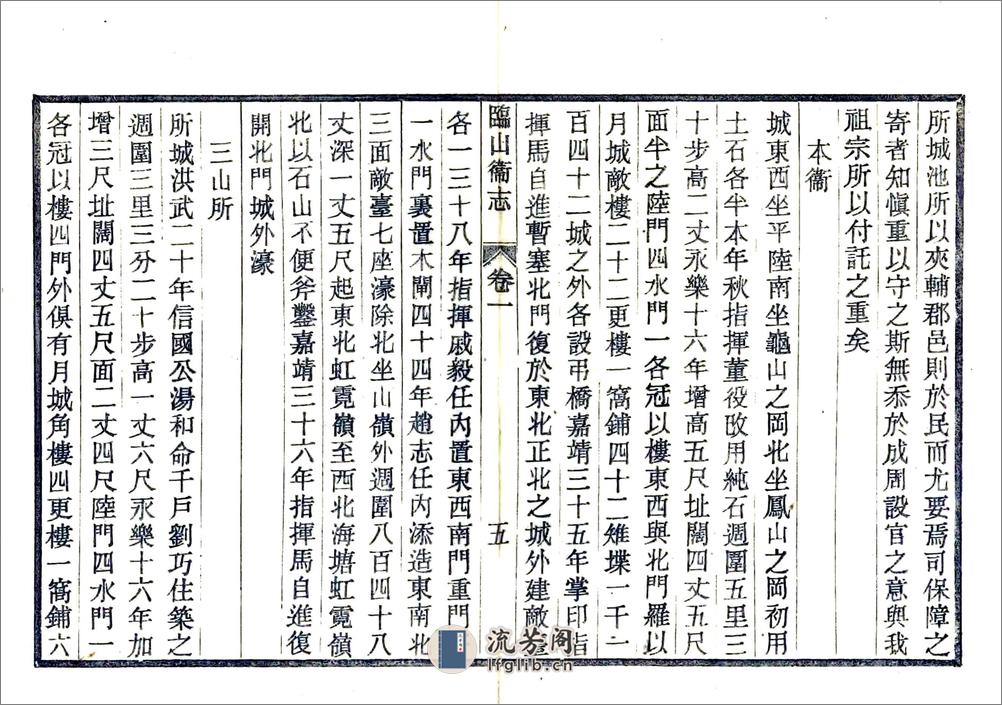 所城池所以夾輔郡邑則於民而尤要焉司保障之
寄者知愼重以守之斯無忝於成周設官之意與我
祖宗所以付託之重矣
本衞
城東西坐平陸南坐龜山之岡北坐鳳山之岡初用
土石各半本年秋指揮董役改用純石週圍五里三
十步高二丈永樂十六年增高五尺址闊四丈五尺
面半之陸門四水門一各冠以樓東西與北門羅以
月城敵樓二十二更樓一窩鋪四十二雉堞一千一
百四十二城之外各設弔橋嘉靖三十五年掌印指
揮馬自進暫塞北門復於東北正北之城外建敵臺
臨山衞志
卷一
五
各一三十八年指揮戚毅任內置東西南門重門
一水門裏置木閘四十四年趙志任內添造東南北
三面敵臺七座濠除北坐山嶺外週圍八百四十八
丈深一丈五尺起東北虹霓嶺至西北海塘虹霓嶺
北以石山不便斧鑿嘉靖三十六年指揮馬自進復
開北門城外濠
三山所
所城洪武二十年信國公湯和命千戶劉巧住築之
週圍三里三分二十步高一丈六尺永樂十六年加
增三尺址闊四丈五尺面二丈四尺陸門四水門一
各冠以樓四門外俱有月城角樓四更樓一窩鋪六
流芳阁
lfglib.cn